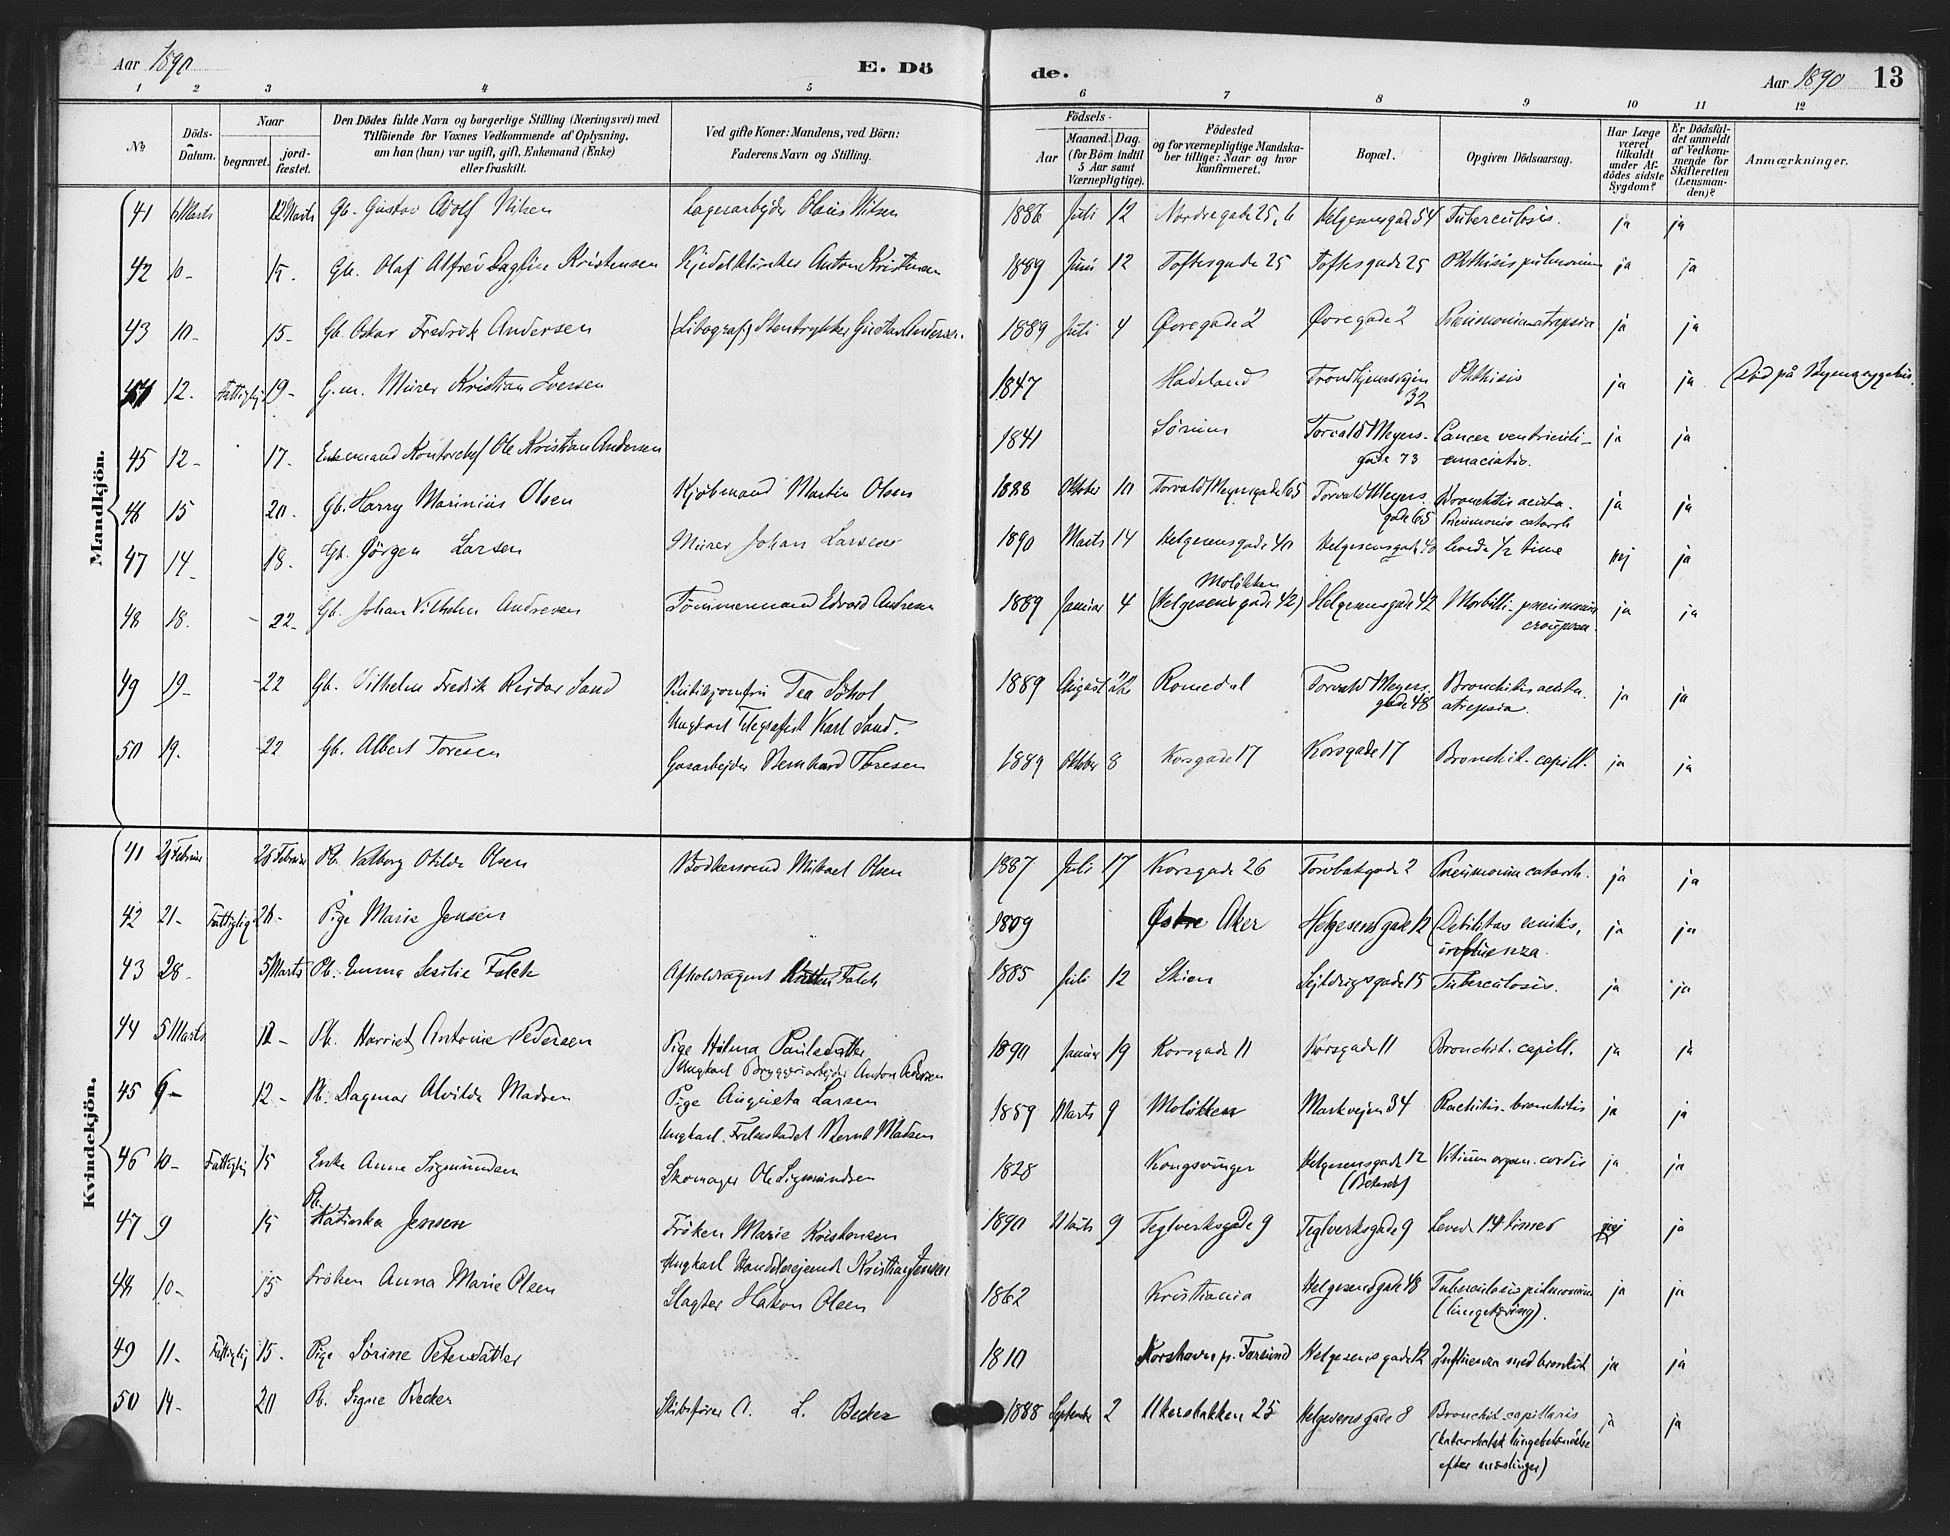 Aar 1890
E. Dö
de.
Aar 1890
13
1 2 3 4 5 6 7 8 9 10 11 12
No
Döds-Datum.
Naar
begravet.
jord-fæstet.
Den Dödes fulde Navn og borgerlige Stilling (Næringsvei) med
Tilföiende for Voxnes Vedkommende af Oplysning,
om han (hun) var ugift, gift, Enkemand (Enke)
eller fraskilt.
Ved gifte Koner: Mandens, ved Börn:
Faderens Navn og Stilling.
Födsels-
Aar
Maaned. Dag.
(for Börn indtil
5 Aar samt
Værnepligtige).
Födested
og for værnepligtige Mandska-
ber tillige: Naar og hvor
konfirmeret.
Bopæl.
Opgiven Dödsaarsag.
Har Læge
været
tilkaldt
under Af-
dödes sidste
Sygdom?
Er Dödsfal-
det anmeldt
af Vedkom-
mende for
Skifteretten
(Lensman-
den)?
Anmærkninger.
Mandkjön.
41 Marts 12 Marts Gb. Gustav Adolf Nilsen Lagerarbejder Olaus Nilsen 1886 Juli 12 Nordregade 25, Helgesensgade 54 Tuberculosis. ja ja
42 10- 15- Gb. Olaf Alfred Kristensen Anton Kristensen 1889 Juni 12 Toftesgade 25 Toftesgade 25 Phthisis pulmonum ja ja
43 10- 15- Gb. Oskar Fredrik Andersen (Litograf) Stentrykker Gustav Andersen. 1889 Juli 4 Øvregade 2 Øvregade 2 Pneumonia atrepsia ja ja
44 12. Fattiglig 19- G.m. Murer Kristian Iversen 1847 Hadeland Trondhjemsvejen 32 Phthisis ja ja
45 12- 17- Enkemand Ole Kristian Andersen 1841 Sørum Torvald Meyers-
gade 73 Cancer ventriculi-
emaciatio. ja ja
46 15 20. Gb. Harry Marinius Olsen Kjøbmand Martin Olsen 1888 Oktober 10 Torvald Meyersgade 65 Torvald Meyers.
gade 65 Bronchitis acuta.
Pneumonia catarrh ja ja
47 14- 18- Gb. Jörgen Larsen Murer Johan Larsen 1890 Marts 14 Helgesensgade 40 Helgesensgade 40 levede 1/2 time nej ja
48 18. 22- Gb. Johan Vilhelm Andresen Tömmermand Edvard Andresen 1889 Januar 4 Moløkken
(Helgesensgade 42) Helgesensgade 42 Morbilli-pneumonia
crouposa. ja ja
49 19- 22 Gb. Vilhelm Fredrik Sand Tea
Ungkarl Telegrafist Karl Sand. 1889 August 22 Romedal Torvald Meyers.
gade 48 Bronchitis acuta.
atrepsia. ja ja
50 19. 22 Gb. Albert Toresen Gasarbejder Bernhard Toresen 1889 Oktober 8 Korsgade 17 Korsgade 17 Bronchit. capill. ja ja
Kvindekjön.
41 Februar 26 Februar Pb. Valborg Otilde Olsen Bødkersvend Mikael Olsen 1887 Juli 17 Korsgade 26 Torvbakgade 2 Pneumonia catarrh. ja ja
42 21- Fattiglig 26- Pige Marie Jensen 1809 Østre Aker Helgesensgade 12 Debilitas senilis,
influenza. ja ja
43 28- 5 Marts Pb. Emma Falck Afholdsagent Falck 1885 Juli 12 Skien Sejldugsgade 15 Tuberculosis. ja ja
44 5 Marts 12- Pb. Harriet Antonie Pedersen Pige Hilma Paulsdatter
Ungkarl Bryggeriarbejder Anton Pedersen 1890 Januar 19 Korsgade 11 Korsgade 11 Bronchit. capill. ja ja
45 6- 12- Pb. Dagmar Alvilda Madsen Pige Augusta Larsen
Ungkarl. Bernt Madsen 1889 Marts 9 Moløkken Markvejen 34 Rachitis-bronchitis ja ja
46 10- Fattiglig 15 Enke Anne Sigmundsen Skomager Ole Sigmundsen 1828 Kongsvinger Helgesensgade 12 Vitium organ. cordis ja ja
47 9 15 Pb. Katinka Jensen Fröken Marie Kristensen
Ungkarl Handelsrejsende Kristian Jensen 1890 Marts 9 Teglverksgade 9 Teglverksgade 9 Levede 14 timer nej ja
48 10- 15 Fröken Anna Marie Olsen Slagter Håkon Olsen 1862 Kristiania Helgesensgade 48 Tuberculosis pulmonum
(lungetæring). ja ja
49 11- Fattiglig 15- Pige Sörine Petersdatter 1810 Korshavn p. Farsund Helgesensgade 12 Influenza med bronkit ja ja
50 14- 20 Pb. Signe Becker Skibsfører A. L. Becker 1888 September 2 Akersbakken 25 Helgesensgade 8 Bronchit. capillaris
(katarrhalsk lungebetændelse
efter mæslinger) ja ja